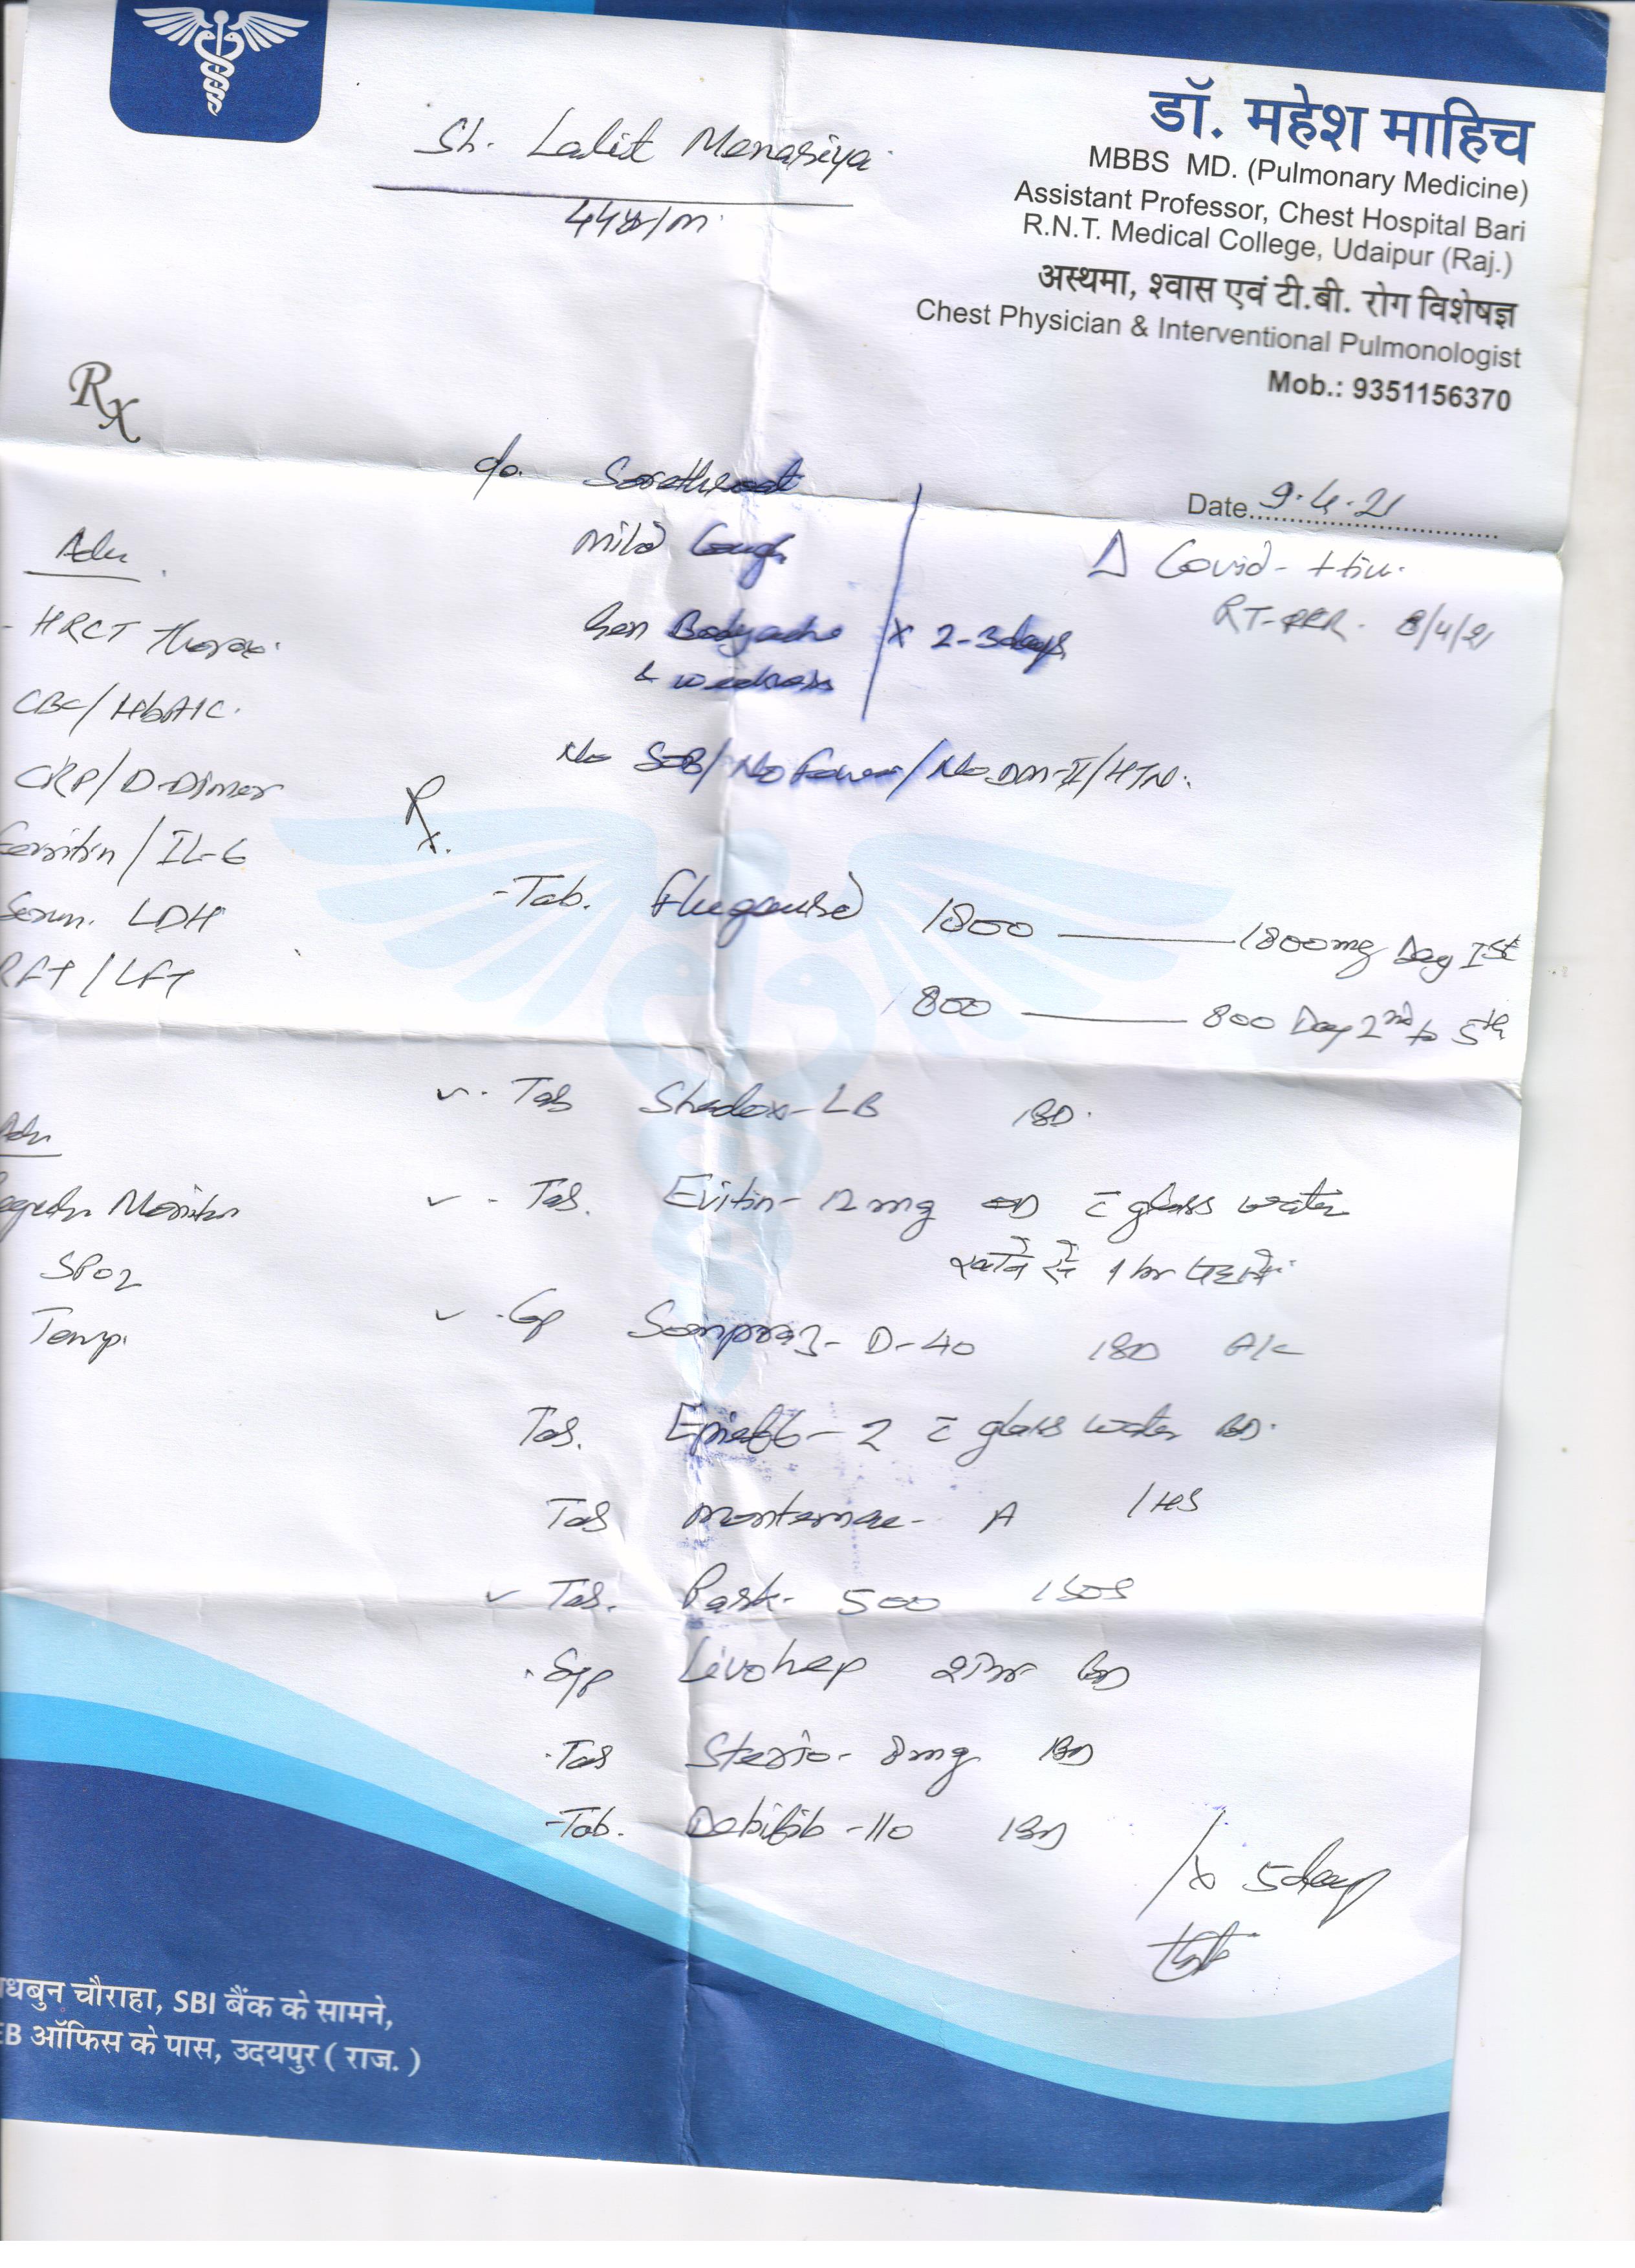 डॉ. महेश माहिच
MBBS MD. (Pulmonary Medicine)
Assistant Professor, Chest Hospital Bari
R.N.T. Medical College, Udaipur (Raj.)
अस्थमा, श्वास एवं टी.बी. रोग विशेषज्ञ
Chest Physician & Interventional Pulmonologist
Mob.: 9351156370
Sh. Lalit Menariya
44yr/m
Rx
Date 9.4.21
c/o. Sorethroat
Mild Cough
Gen Bodyache x 2-3days
& weakness
Δ Covid - +tive
RT-PCR. 8/4/21
No SOB/No Fever/No DM-II/HTN.
Adv
- HRCT Thorax
CBC/HbA1C.
CRP/D-Dimer
Ferritin/IL-6
Serum. LDH
RFT/LFT
Rx
- Tab. 1800 — 1800mg Day Ist
800 — 800 Day 2nd to 5th
Tab -LB 1BD.
Tab. Evitin- 12mg OD c̄ glass water
खाने से 1 hr पहले
Cap Sompraz- D-40 1BD A/C
Tab. - 2 c̄ glass water BD.
Tab - A 1HS
Tab. 500 1SOS
Syp Livohep BD
Tab 8mg 1BD
Tab. -110 1BD
x 5days
Adv
Monitor
SPO2
Temp.
चौराहा, SBI बैंक के सामने,
ऑफिस के पास, उदयपुर ( राज. )